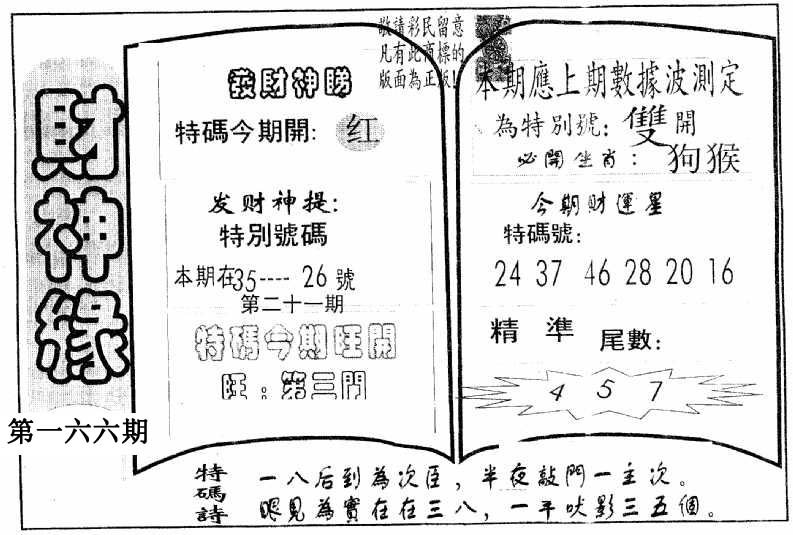 財神緣
第一六六期
敬請彩民留意
凡有此商標的
版面為正版!
發財神睇
特碼今期開: 红
发财神提:
特別號碼
本期在35----26號
第二十一期
特碼今期旺開
旺:第三門
本期應上期數據波測定
為特別號:雙開
必開生肖: 狗猴
今期財運星
特碼號:
24 37 46 28 20 16
精準 尾數:
4 5 7
特碼詩
一八后到為次臣,半夜敲門一主次。
眼見為實在在三八,一平吠影三五個。